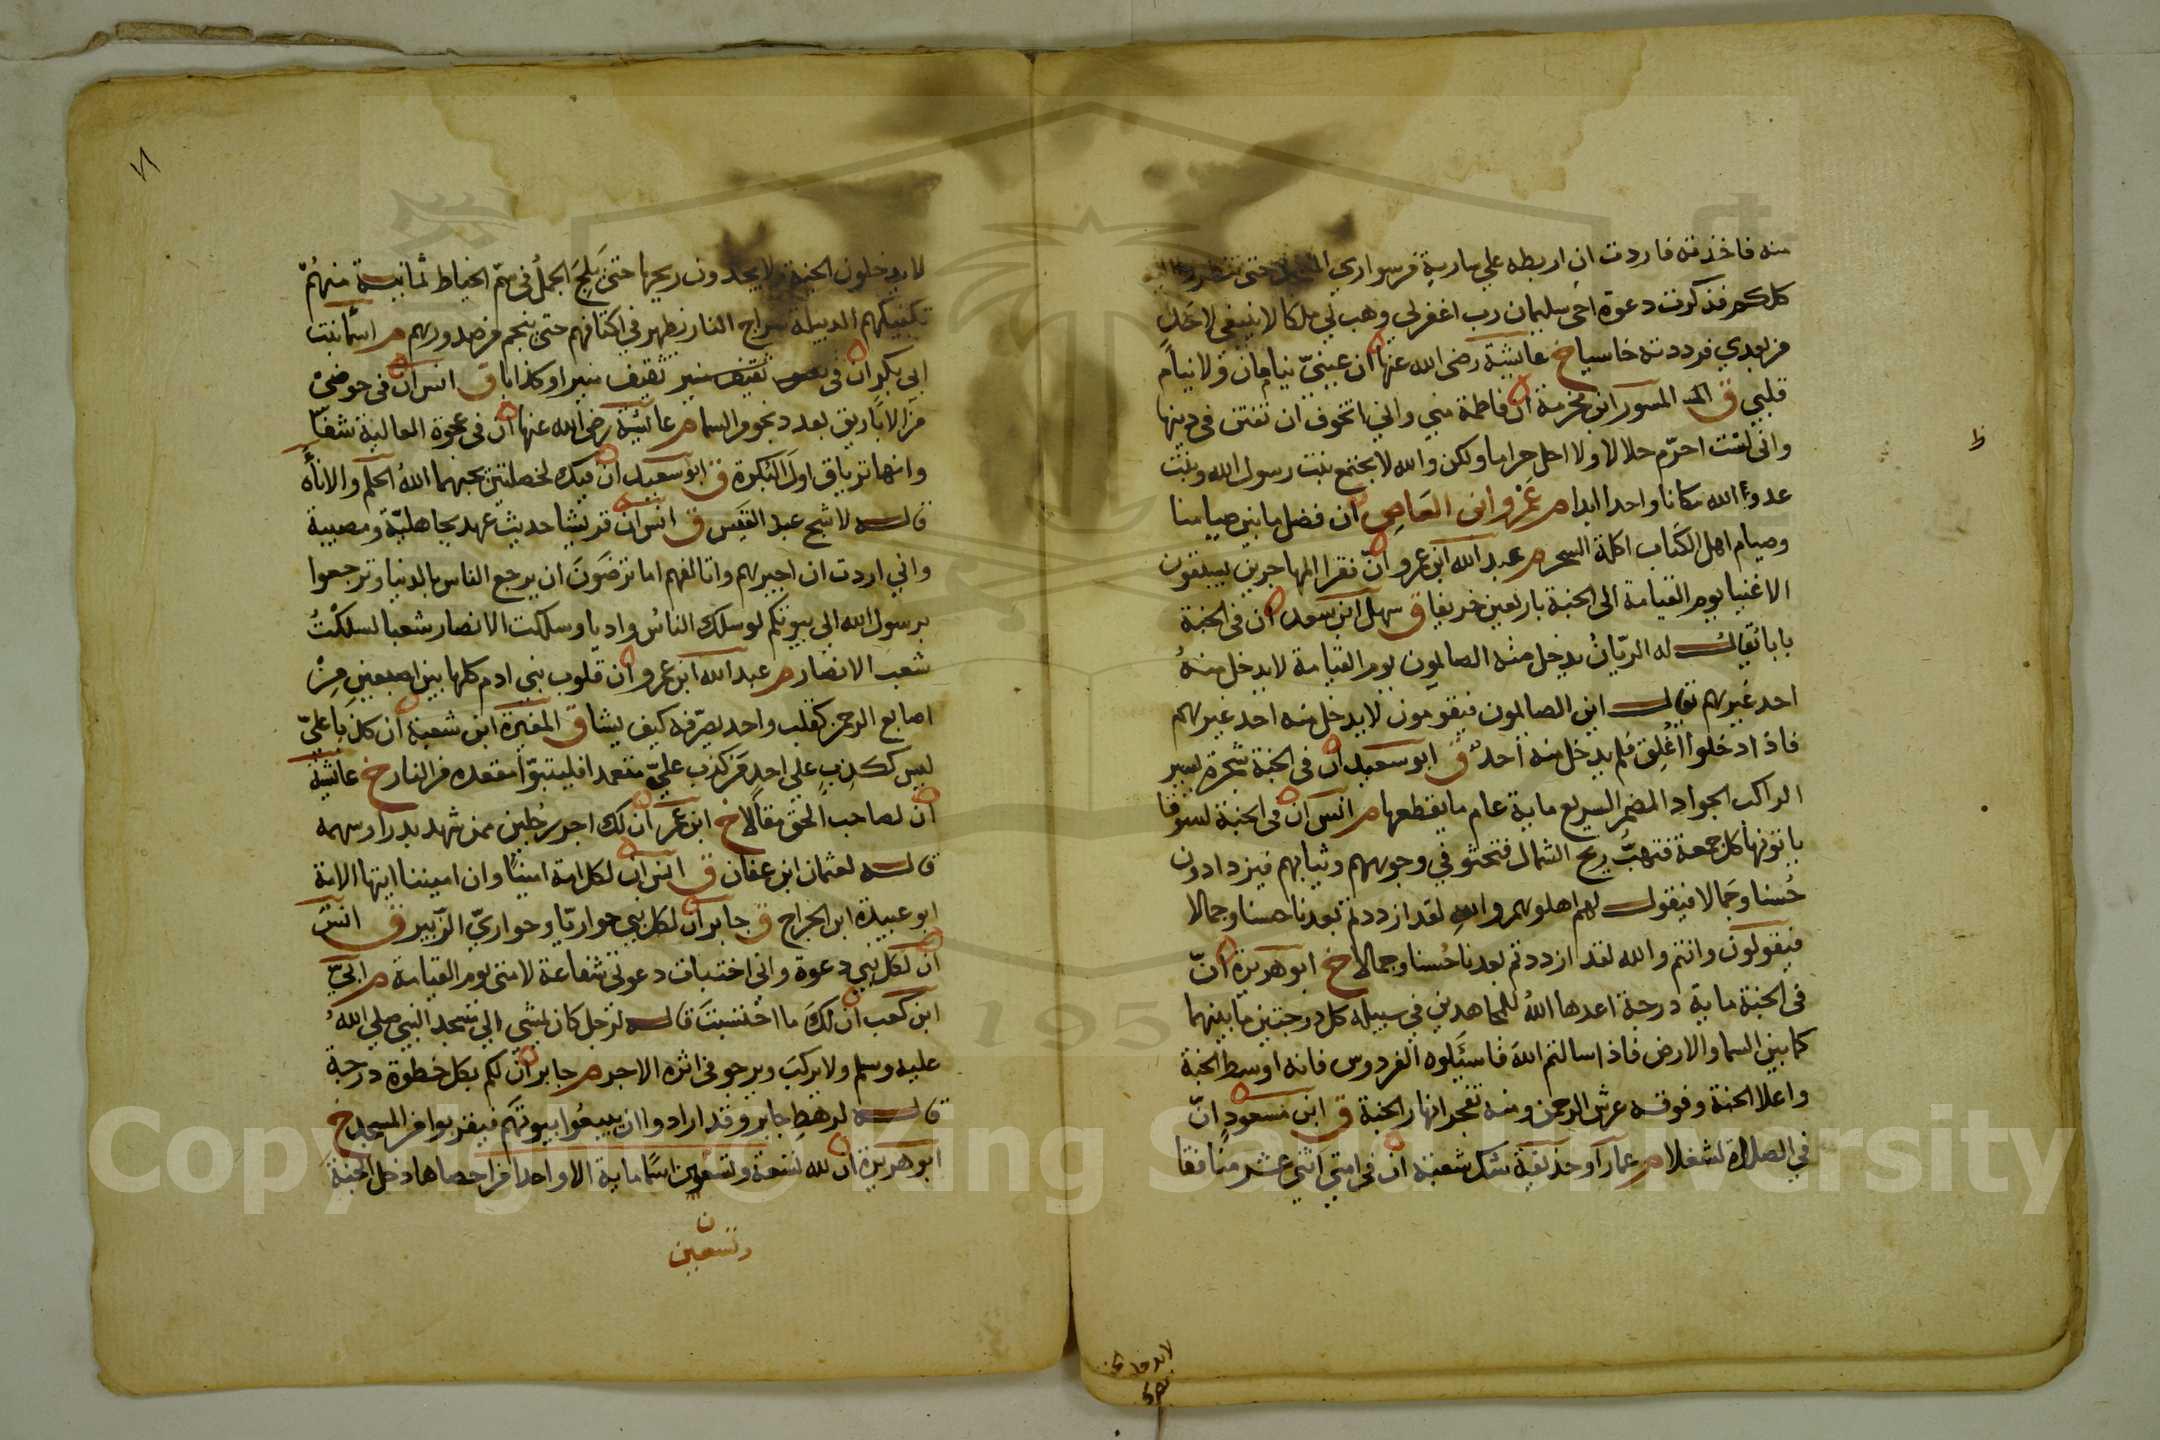 منه فاخذته فاردت ان اربطه علي سارية من سواري المسجد حتى تنظروا اليه
كلكم فذكرت دعوة اخي سليمان رب اغفر لي وهب لي ملكا لا ينبغي لاحد
من بعدي فرددته خاسيا خ عايشة رضي الله عنها ان عينيّ تنامان ولا ينام
قلبي ق المسور ابن مخرمة ان فاطمة مني واني اتخوف ان تفتن في دينها
واني لست احرّم حلالا ولا احل حراما ولكن والله لا تجتمع بنت رسول الله وبنت
عدو الله مكانا واحدا ابدا م عَمْرو ابن العَاصِ ان فضل ما بين صيامنا
وصيام اهل الكتاب اكلة السحر م عبد الله ابن عمرو انّ فقرا المهاجرين يسبقون
الاغنيا يوم القيامة الى الجنة باربعين خريفا ق سهل ابن سعد ان في الجنة
بابا يقال له الريّان يدخل منه الصايمون يوم القيامة لا يدخل منهُ
احد غيرهم يقال اين الصايمون فيقومون لا يدخل منه احد غيرهم
فاذا دخلوا أُغلِق فلم يدخل منه أحد ق ابو سعيد ان في الجنة شجرة يسير
الراكب الجواد المضمر السريع ماية عام ما يقطعها م انس ان في الجنة لسوقا
ياتونها كل جمعة فتهبّ ريح الشمال فتحثو في وجوههم وثيابهم فيزدادون
حُسنا وجمالا فيقول لهم اهلوهم والله لقد ازددتم بعدنا حسنا وجمالا
فيقولون وانتم والله لقد ازددتم بعدنا حُسنا وجمالا خ ابو هريرة انّ
في الجنة ماية درجة اعدها اللهُ للمجاهدين في سبيله كل درجتين ما بينهما
كما بين السما والارض فاذا سالتم اللهَ فاسئلوه الفردوس فانه اوسط الجنة
واعلا الجنة وفوقه عرش الرحمن ومنه تفجر انهار الجنة ق ابن مسعود انّ
في الصلاة لشغلا م عمار او حذيفة شك شعبة ان في امتي اثني عشر منافقا
لا يدخلون الجنة
ط
٧١
لا يدخلون الجنة ولا يجدون ريحها حتىّ يَلِجَ الجملُ في سمّ الخياط ثمانية منهُمْ
تكفيكهم الدبيلة سراج النار يظهر في اكتافهم حتى ينجم من صدورهم م اسما بنت
ابي بكر ان في ثقيف مبير او كذابا ق انس ان في حوضيْ
من الاباريق بعدد نجوم السما م عائشة رضي الله عنها ان في عجوة العالية شفاً
وانها ترياق اول البُكرة ق ابو سعيد ان فيك لخصلتين يحبهما اللهُ الحلم والاناة
قال لاشج عبد القيس ق انس ان قريشا حديث عهد بجاهليّة ومصيبة
واني اردت ان اجبرهم واتالفهم اما ترضَونَ ان يرجع الناس بالدنيا وترجعوا
برسول الله الي بيوتكم لو سلك الناسُ واديا وسلكت الانصار شعبا لسلكْتُ
شعب الانصار م عبد الله ابن عمرو ان قلوب بني ادم كلها بين اصبعين مِنْ
اصابع الرحمن كقلب واحد يصرّفه كيف يشا ق المغيرة ابن شعبة ان كذبا عليّ
ليس ككذبٍ علي احدٍ من كذب عليّ متعمدا فليتبوّا مقعده من النار خ عائشة
ان لصاحب الحق مقالا خ ابن عمر ان لك اجر رجلين ممن شهد بدرا وسهمه
قال لعثمان ابن عفان ق انس ان لكل امة امينًا وان اميننا ايتها الامة
ابو عبيدة ابن الجراح ق جابر ان لكل نبي حواريّا وحواريّ الزّبير ق انس
ان لكل نبي دعوة واني اختبات دعوتي شفاعة لامتي يوم القيامة م ابيّ
ابن كعب ان لكَ ما احْتسبتَ قال لرجل كان يمشي الي مسجد النبي صلي اللهُ
عليه وسلم ولا يركبَ ويرجو في اثره الاجر م جابر ان لكم بكل خطوة درجة
قال لرهطِ جابر وقد ارادوا ان يبيعُوا بيوتهم فيقربوا من المسجد خ
ابو هريرة ان لله تسعة وتسعون اسمًا ماية الا واحدا من احصاها دخل الجنة
ن
وتسعين